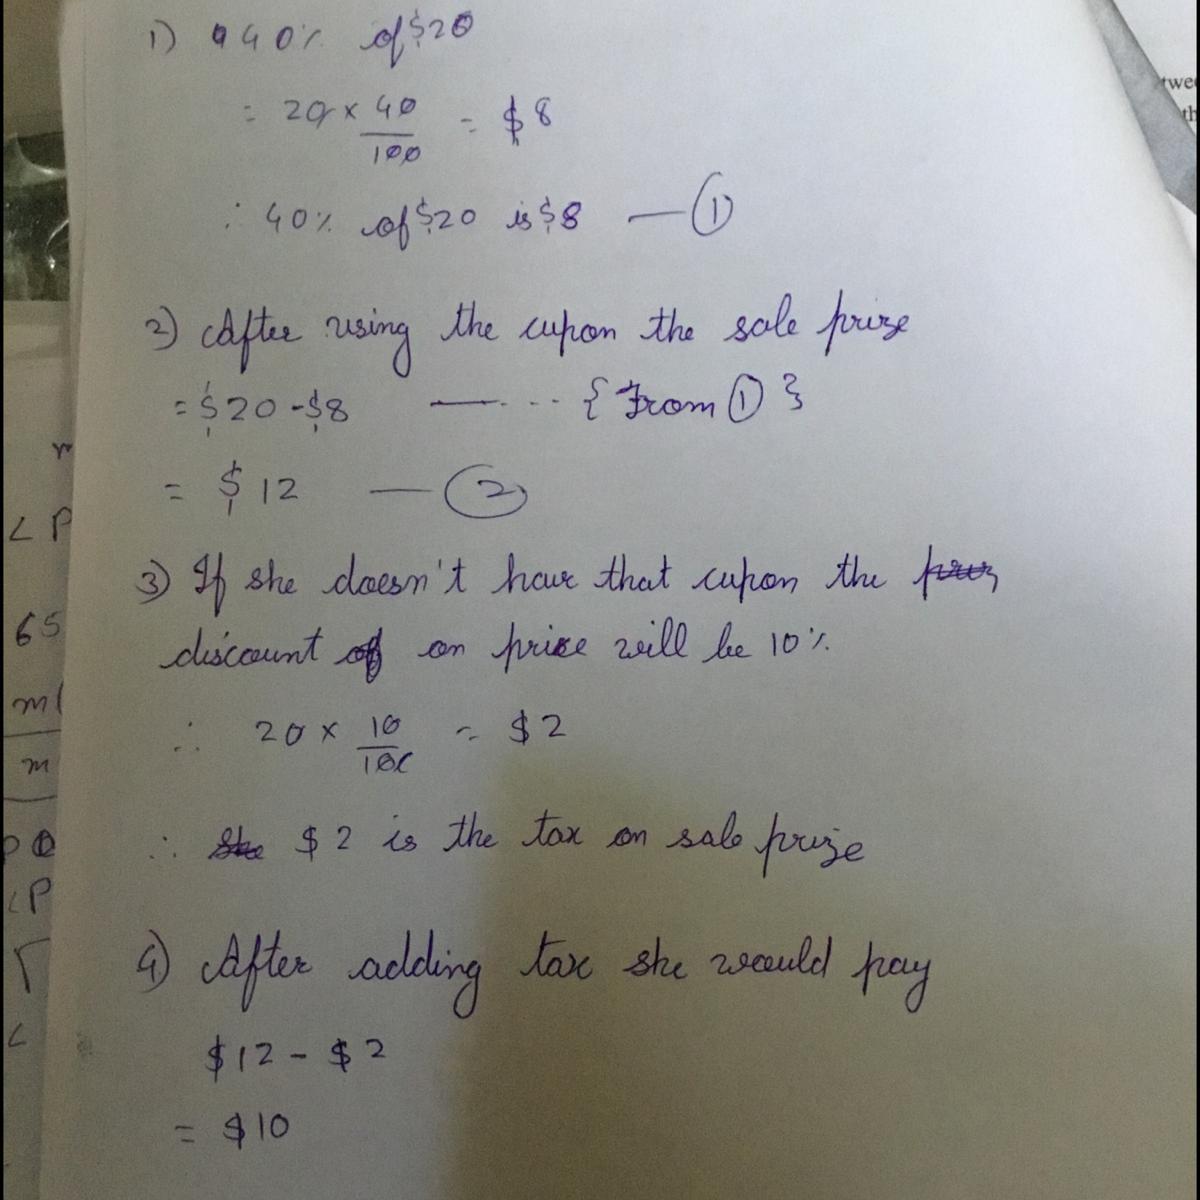 1) 40% of $20
= 20 × 40/100 = $8
∴ 40% of $20 is $8 — ①
2) After using the cupon the sale prize
= $20 - $8 —--- {From ①}
= $12 — ②
3) If she doesn't have that cupon the
discount on price will be 10%.
∴ 20 × 10/100 = $2
∴ She $2 is the tax on sale prize
4) After adding tax she would pay
$12 - $2
= $10
twe
th
r
∠P
65
m(
m
PQ
∠P
∠